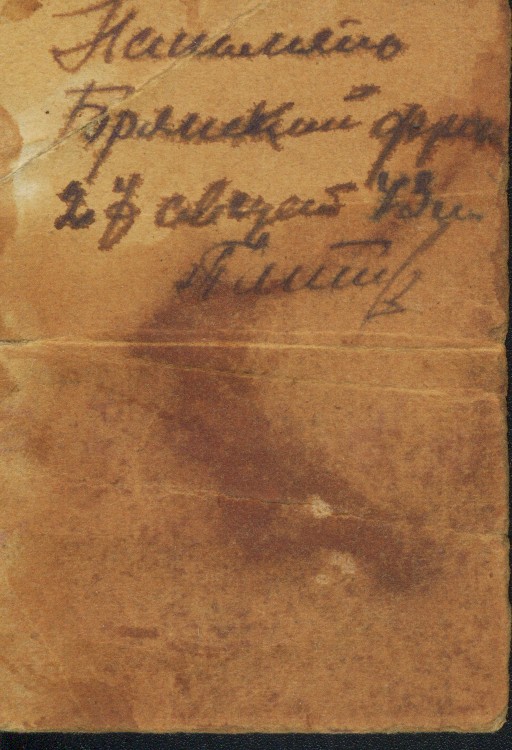 Напамять
Брянский фрон
27 август 43г.